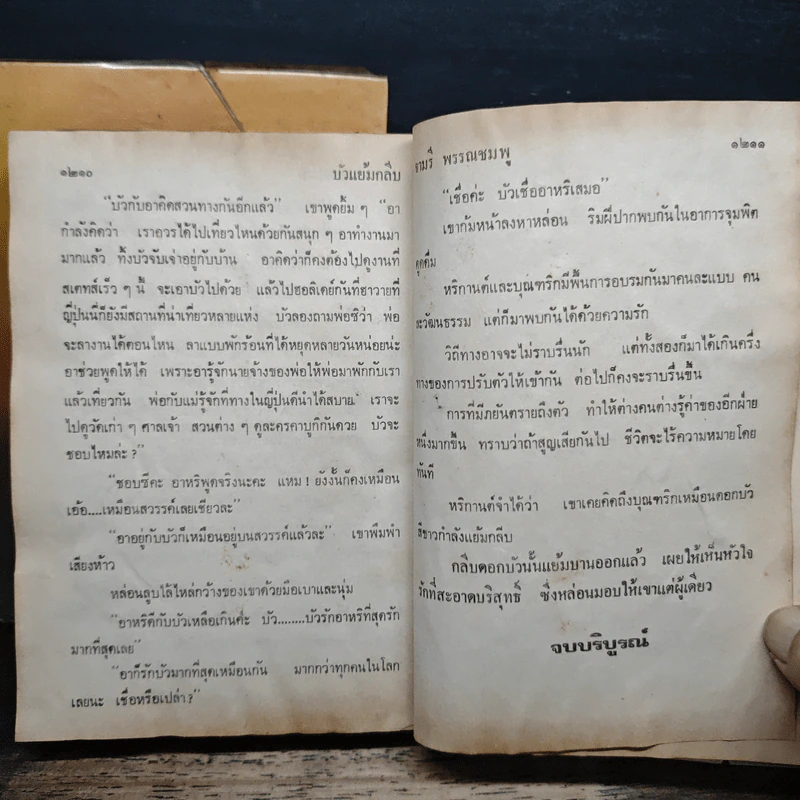 ๑๒๑๐ บัวแย้มกลีบ
"บัวกับอาคิดสวนทางกันอีกแล้ว" เขาพูดยิ้ม ๆ "อา
กำลังคิดว่า เราควรได้ไปเที่ยวไหนด้วยกันสนุก ๆ อาทำงานมา
มากแล้ว ทั้งบัวจับเจ่าอยู่กับบ้าน อาคิดว่าก็คงต้องไปดูงานที่
สเตทส์เร็ว ๆ นี้ จะเอาบัวไปด้วย แล้วไปฮอลิเดย์กันที่ฮาวายที่
ญี่ปุ่นนี่ก็ยังมีสถานที่น่าเที่ยวหลายแห่ง บัวลองถามพ่อซิว่า พ่อ
จะลางานได้ตอนไหน ลาแบบพักร้อนที่ได้หยุดหลายวันหน่อยน่ะ
อาช่วยพูดให้ได้ เพราะอารู้จักนายจ้างของพ่อให้พ่อมาพักกับเรา
แล้วเที่ยวกัน พ่อกับแม่รู้จักที่ทางในญี่ปุ่นดีนำได้สบาย เราจะ
ไปดูวัดเก่า ๆ ศาลเจ้า สวนต่าง ๆ ดูละครคาบูกิกันด้วย บัวจะ
ชอบไหมล่ะ?"
"ชอบซีคะ อาหริพูดจริงนะคะ แหม! ยังงั้นก็คงเหมือน
เอ้อ....เหมือนสวรรค์เลยเชียวละ"
"อาอยู่กับบัวก็เหมือนอยู่บนสวรรค์แล้วละ" เขาพึมพำ
เสียงห้าว
หล่อนลูบไล้ไหล่กว้างของเขาด้วยมือเบาและนุ่ม
"อาหริดีกับบัวเหลือเกินค่ะ บัว........บัวรักอาหริที่สุดรัก
มากที่สุดเลย"
"อาก็รักบัวมากที่สุดเหมือนกัน มากกว่าทุกคนในโลก
เลยนะ เชื่อหรือเปล่า?"
พรรณชมพู ๑๒๑๑
"เชื่อค่ะ บัวเชื่ออาหริเสมอ"
เขาก้มหน้าลงหาหล่อน ริมฝีปากพบกันในอาการจุมพิต
ดูดดื่ม
หริกานต์และบุณฑริกมีพื้นการอบรมกันมาคนละแบบ คน
ละวัฒนธรรม แต่ก็มาพบกันได้ด้วยความรัก
วิถีทางอาจจะไม่ราบรื่นนัก แต่ทั้งสองก็มาได้เกินครึ่ง
ทางของการปรับตัวให้เข้ากัน ต่อไปก็คงจะราบรื่นขึ้น
การที่มีภยันตรายถึงตัว ทำให้ต่างคนต่างรู้ค่าของอีกฝ่าย
หนึ่งมากขึ้น ทราบว่าถ้าสูญเสียกันไป ชีวิตจะไร้ความหมายโดย
ทันที
หริกานต์จำได้ว่า เขาเคยคิดถึงบุณฑริกเหมือนดอกบัว
สีขาวกำลังแย้มกลีบ
กลีบดอกบัวนั้นแย้มบานออกแล้ว เผยให้เห็นหัวใจ
รักที่สะอาดบริสุทธิ์ ซึ่งหล่อนมอบให้เขาแต่ผู้เดียว
จบบริบูรณ์